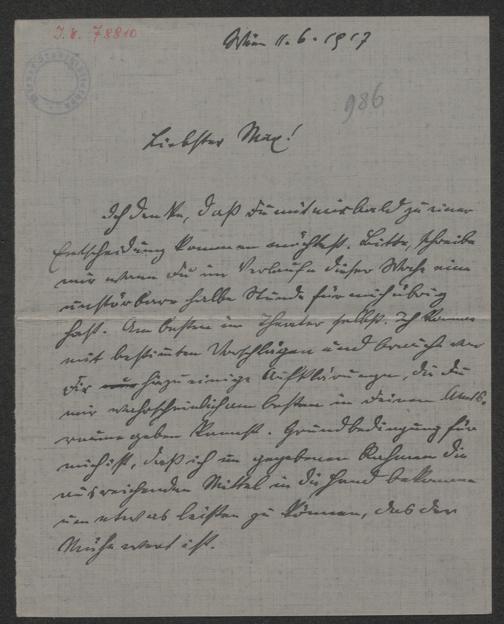 I. N. 78810
Wien 11.6.1917
986
Liebster Max!
Ich denke, daß du mit mir bald zu einer
Entscheidung kommen möchtest. Bitte, schreibe
mir wann du im Verlaufe dieser Woche eine
unstörbare halbe Stunde für mich übrig
hast. Am besten im Theater selbst. Ich komme
mit bestimten Vorschlägen und brauche von
dir hiezu einige Aufklärungen, die du
mir wahrscheinlich am besten in deinen Amts-
räumen geben kannst. Grundbedingung für
mich ist, daß ich im gegebenen Rahmen die
ausreichenden Mittel in die Hand bekomme
um etwas leisten zu können, das der
Mühe wert ist.